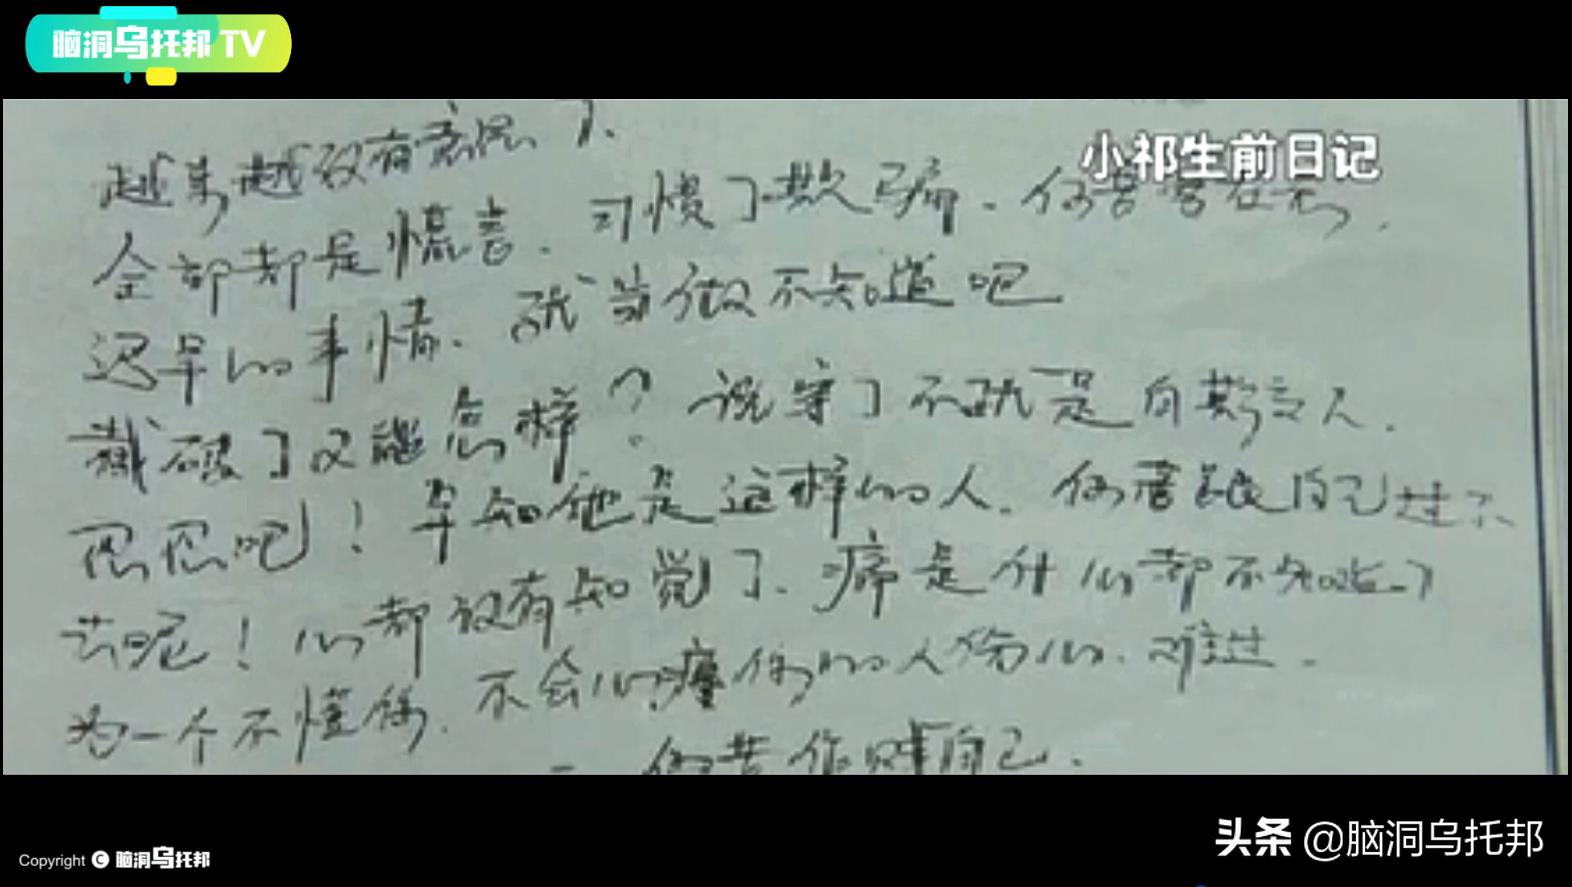 脑洞乌托邦 TV
小祁生前日记
越来越没有意思了、
全部都是慌言、习惯了欺骗、何苦
迟早的事情、就当做不知道吧
戳破了又能怎样？说穿了不就是自欺欺人.
忍忍吧！早知他是这样的人、何苦跟自己过不
去呢！心都没有知觉了、痛是什么都不知道了
为一个不懂你、不会心疼你的人伤心、难过.
何苦作贱自己.
头条 @脑洞乌托邦
Copyright C 脑洞乌托邦